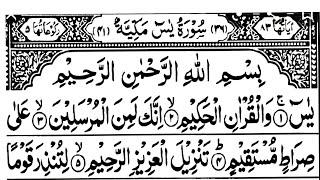 اٰیَاتُهَا ۸۳ (۳۶) سُوْرَةُ يٰسٓ مَكِّيَّةٌ (۴۱) رُكُوْعَاتُهَا ۵
بِسْمِ اللّٰهِ الرَّحْمٰنِ الرَّحِيْمِ
يٰسٓ ۱ وَالْقُرْاٰنِ الْحَكِيْمِ ۲ اِنَّكَ لَمِنَ الْمُرْسَلِيْنَ ۳ عَلٰى
صِرَاطٍ مُّسْتَقِيْمٍ ۴ تَنْزِيْلَ الْعَزِيْزِ الرَّحِيْمِ ۵ لِتُنْذِرَ قَوْمًا